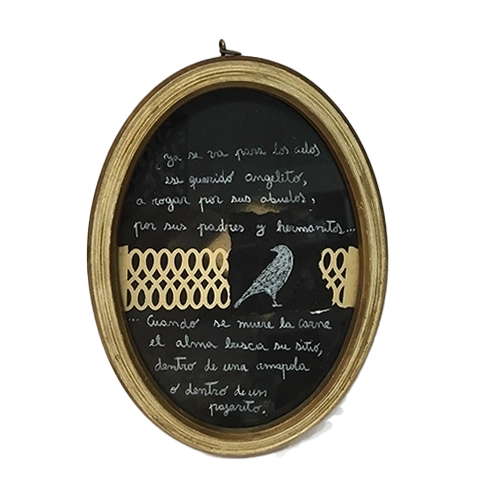 ya se va para los cielos
ese querido angelito,
a rogar por sus abuelos,
por sus padres y hermanitos...
... Cuando se muere la carne
el alma busca su sitio,
dentro de una amapola
o dentro de un
pajarito.